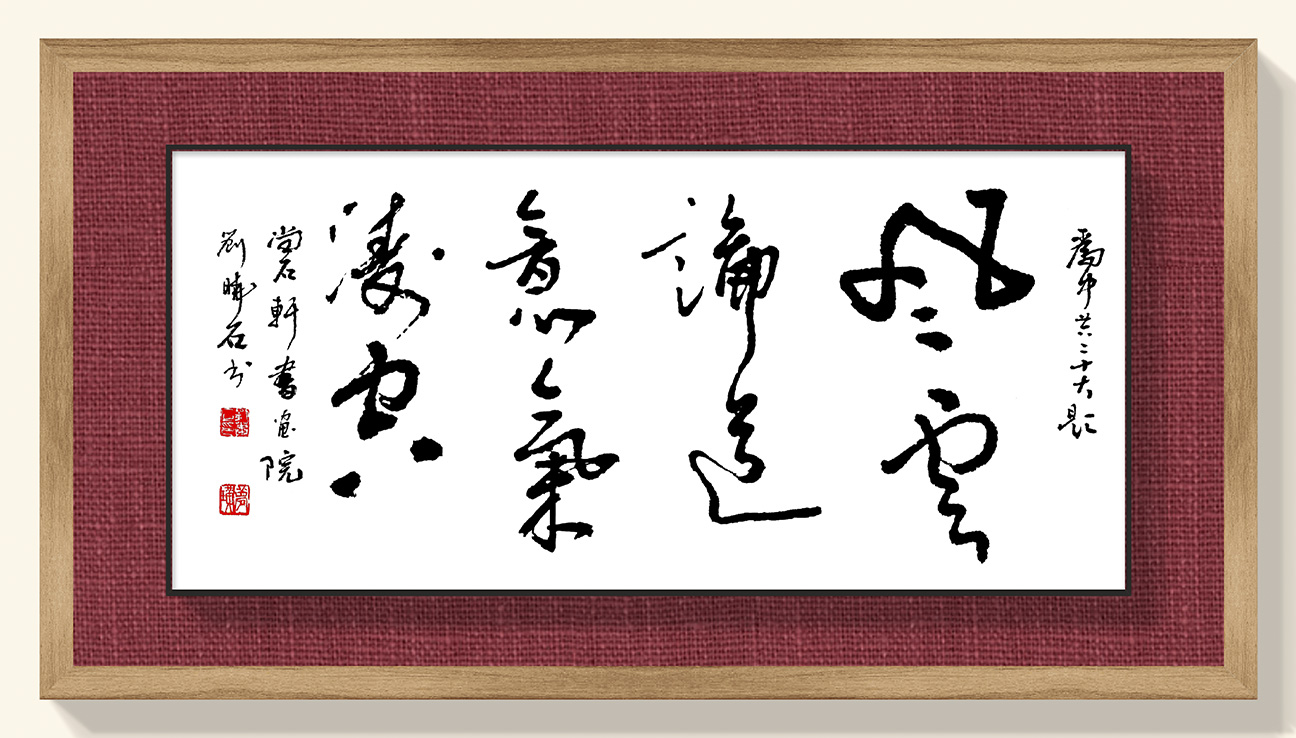 為中共二十大題
風雲
論道
意氣
凌雲
嘗石軒書畫院
劉曉石书